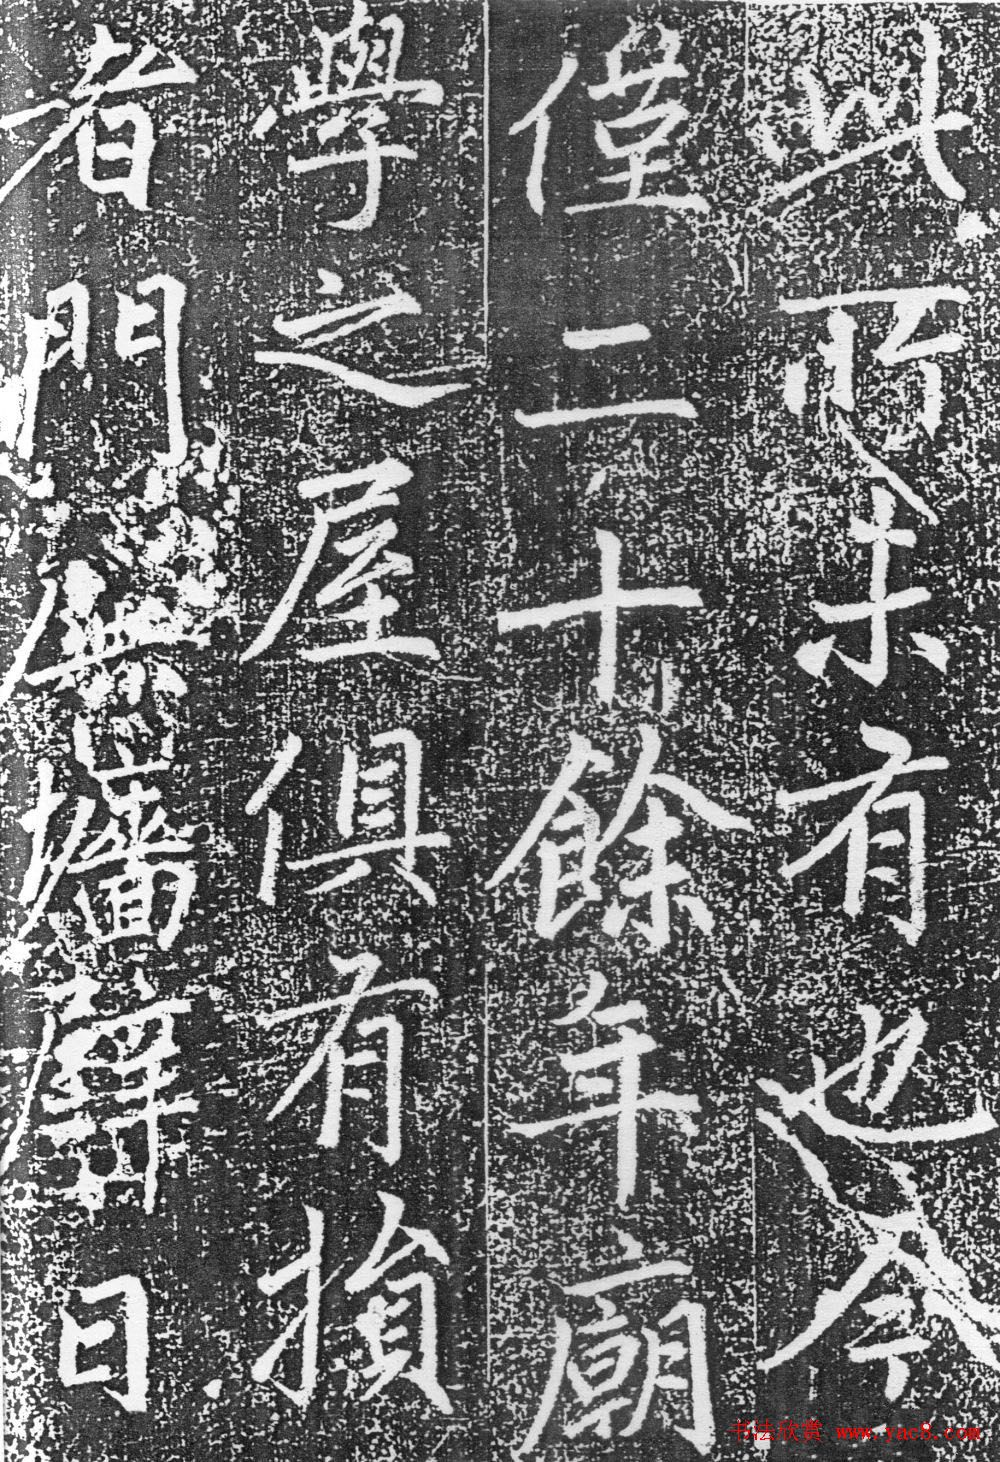 所未有也今
僅二十餘年廟
學之屋俱有損
者門廡墻壁日
书法欣赏 www.yac8.com